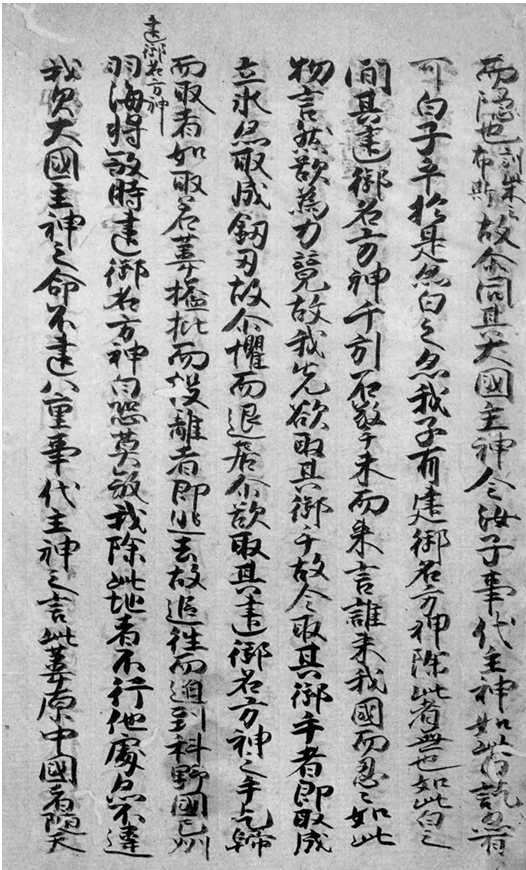 而隠也訓柴云布斯故尒問其大國主神今汝子事代主神如此白訖亦有
可白子乎於是亦白之亦我子有建御名方神除此者無也如此白之
間其建御名方神千引石擎手末而来言誰来我國而忍々如此
物言然欲為力競故我先欲取其御手故令取其御手者即取成
立氷亦取成釼刃故尒懼而退居尒欲取其建御名方神之手乞歸
而取者如取若葦搤批而投離者即逃去故追往而迫到科野國之州
建御名方神
羽海将殺時建御名方神白恐莫殺我除此地者不行他處亦不違
我父大國主神之命不違八重事代主神之言此葦原中國者隨天